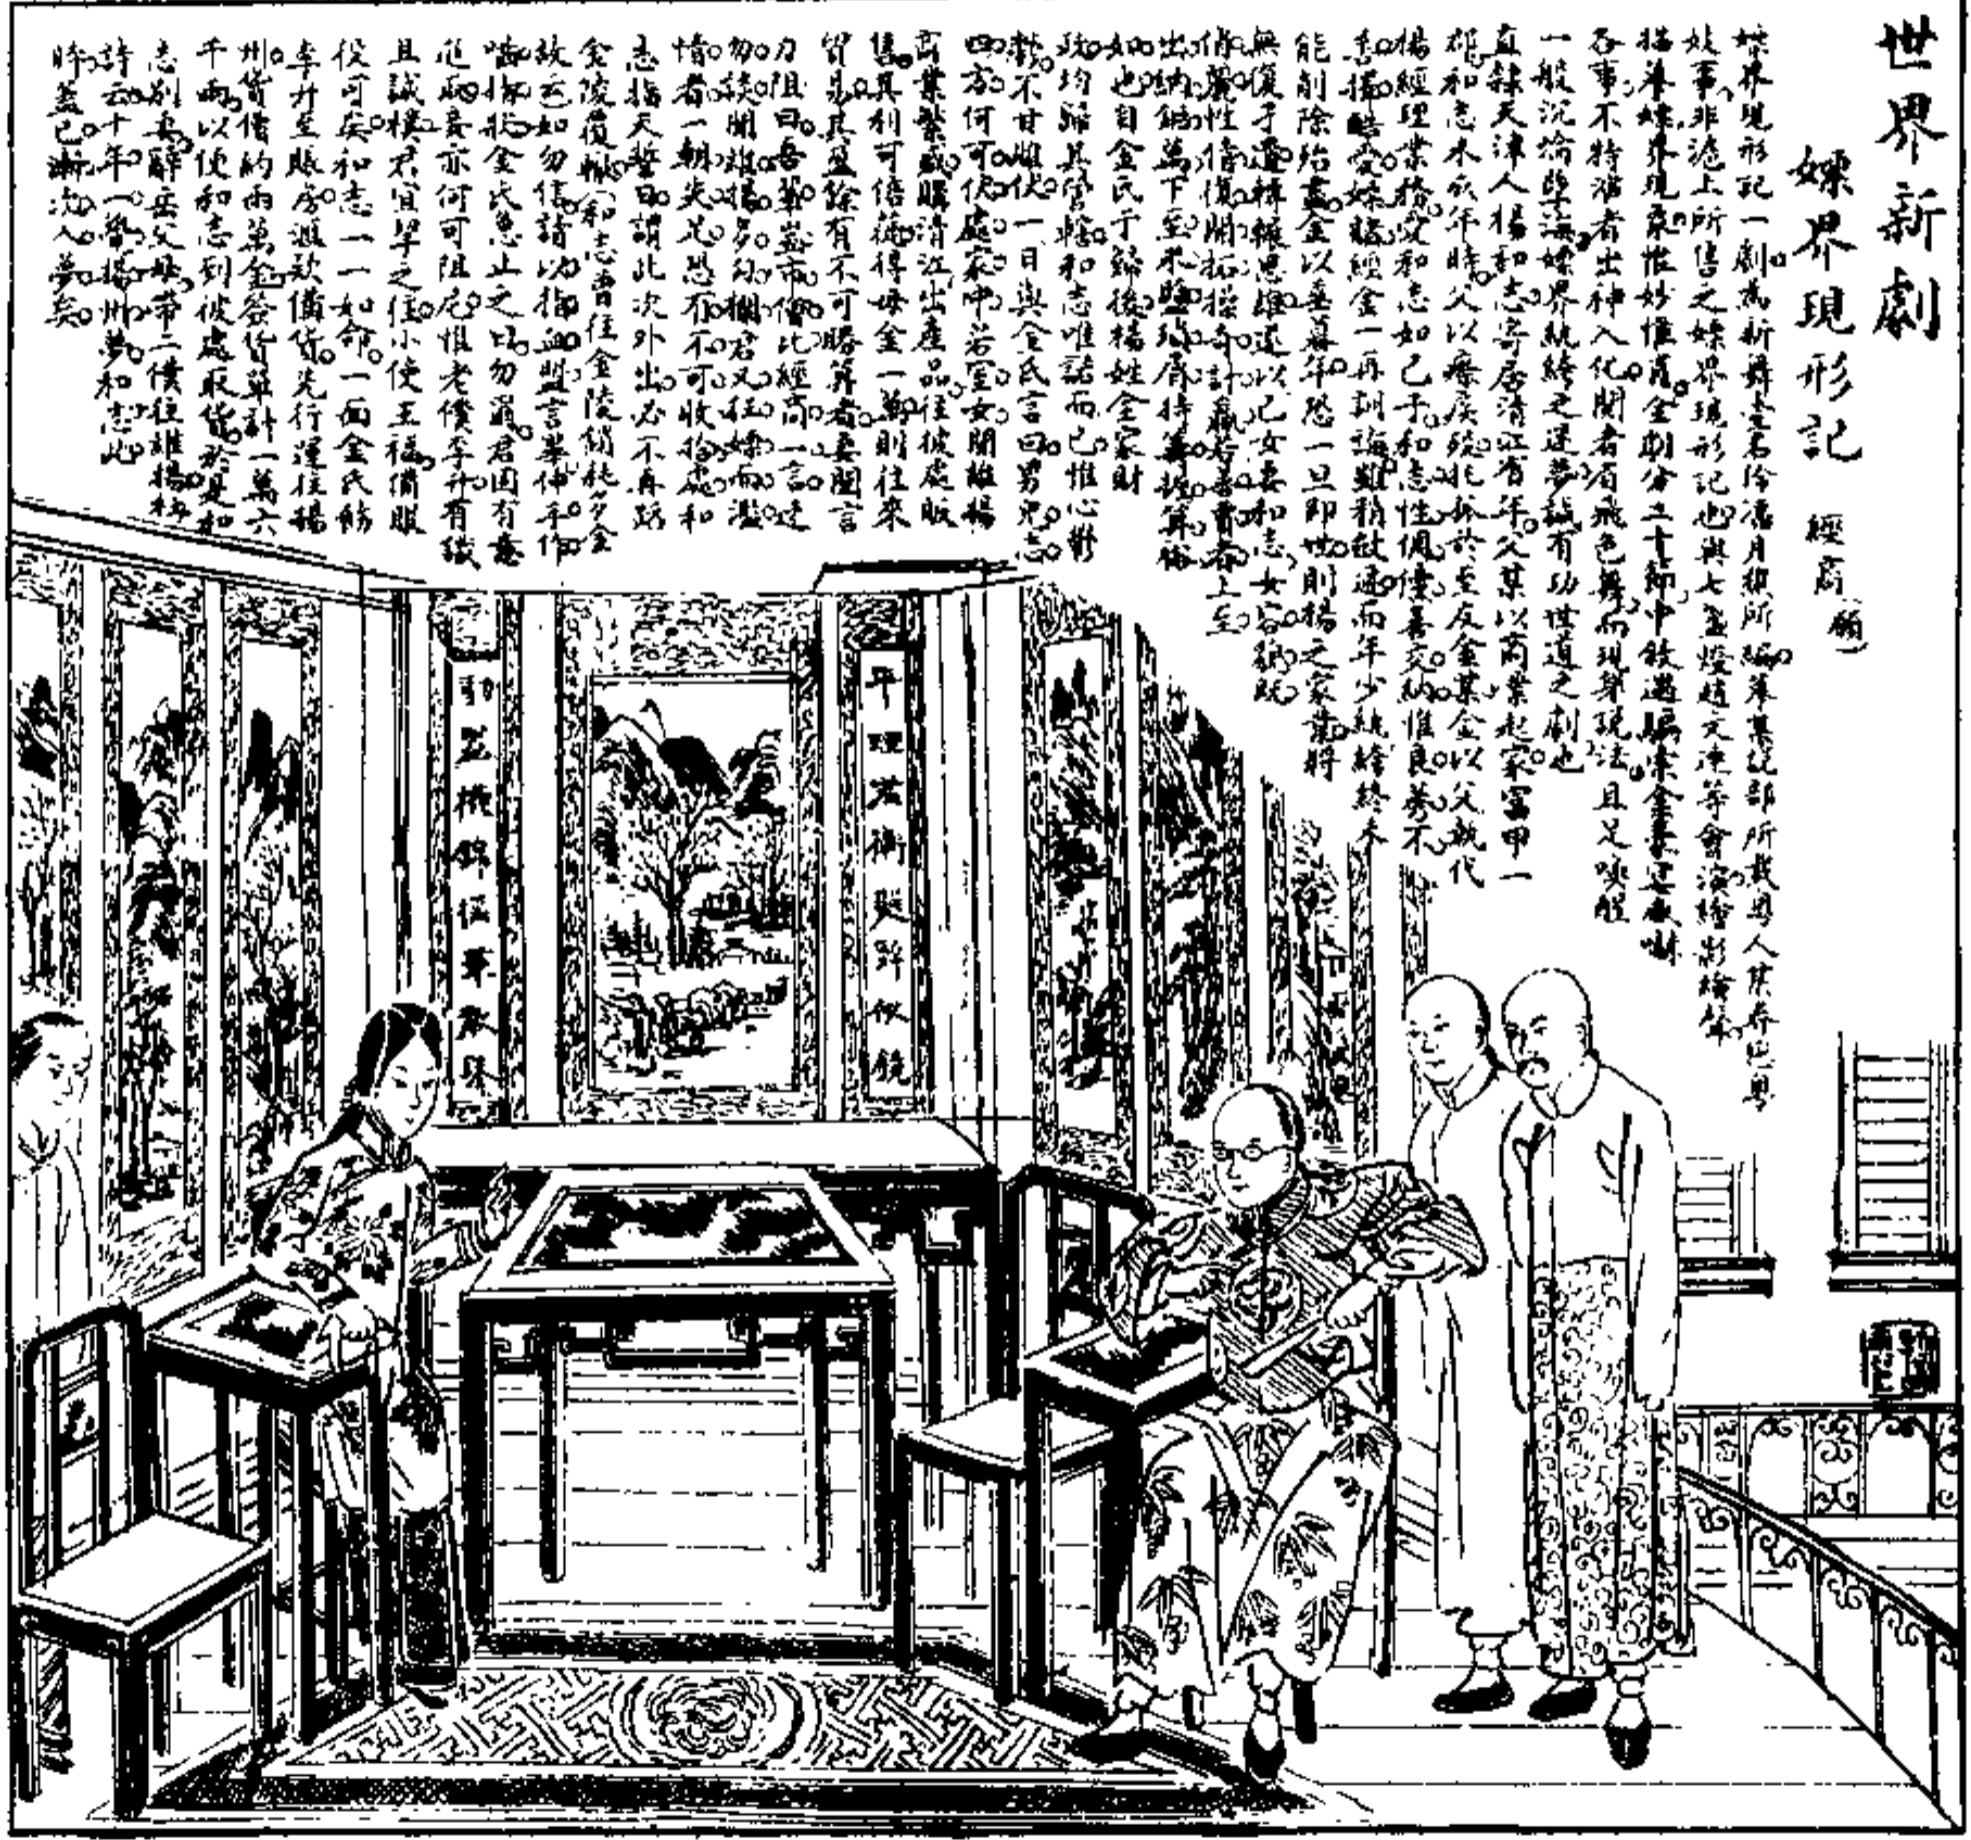 世界新劇
嫖界現形記 經商 (願一)
嫖界現形記一劇為新舞臺名伶馮月樵所編
妓事非滬上所售之嫖界現形記也與七盞燈趙文連等會演繪影繪聲
描摹嫖界現象惟妙惟肖全劇分二十節中
各事不特演者出神入化閱者眉飛色舞而現身說法且足喚醒
一般沉淪孽海嫖界紈絝之迷夢誠有功世道之劇也
直隸天津人楊和志寄居清江有年父某以商業起家富甲一
郡和志木成年時父以療疾 於至友金某金以父執代
楊經理業務愛和志如己子和志性倜儻喜交納惟良莠不
酷愛嫖賭經金一再訓誨雖稍斂迹而年少紈絝終未
能削除殆盡金以垂暮年恐一旦即世則楊之家業將
無復孑遺輾轉思維遂以己女妻和志女容貌既
俏麗性倍復開拓操奇計贏若善賈者上至
出納鉅萬下至米鹽瑣屑持籌握算裕
如也自金氏于歸後楊姓全家財
政均歸其管轄和志唯諾而已惟心鬱
鬱不甘雌伏一日與金氏言曰男兒志
四方何可伏處家中若室女聞維揚
商業繁盛購清江出產品往彼處販
售其利可倍蓰得母金一萬則往來
貿易其盈餘有不可勝算者妻聞言
力阻曰吾輩豈市儈比經商一言速
勿談聞維揚多勾欄君又任嫖而濫
情者一朝失足恐有不可收拾處和
志指天誓曰謂此次外出必不再蹈
金陵覆轍(和志曾往金陵銷耗多金
故云)如勿信請以指血盟言畢伸手作
嚙指狀金氏急止之曰勿爾君固有意
商亦何可阻尼惟老僕李升有識
且誠樸君宜挈之往小使王福備服
役可矣和志一一如命一面金氏飭
李升至賬房滙款備貨先行運往揚
州貨價約兩萬金簽貨單計一萬六
千兩以便和志到彼處取貨於是和
志別妻辭岳父母帶二僕往維揚
詩云十年一覺揚州夢和志此
時蓋已漸次入夢矣
平理若衡 照辭如鏡
動墨橫錦 搖筆散珠